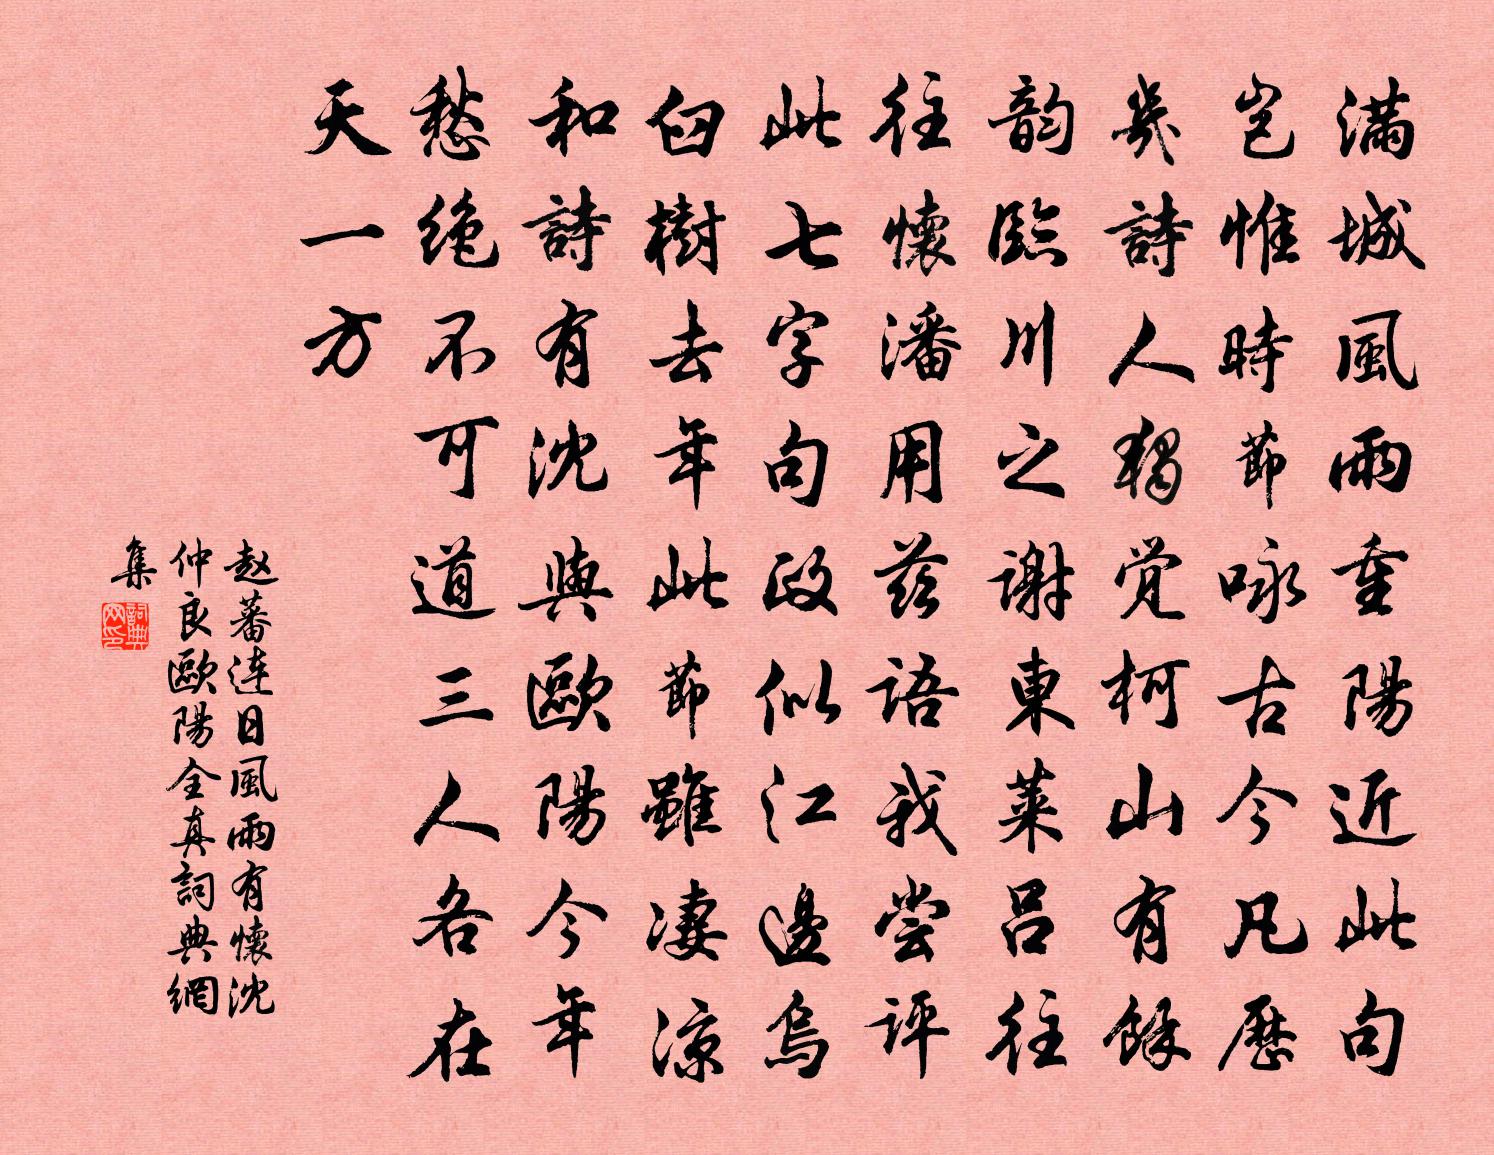 滿城風雨重陽近此句
豈惟時節咏古今凡歷
幾詩人獨覺柯山有餘
韵臨川之謝東萊呂往
往懷潘用茲語我嘗評
此七字句政似江邊烏
臼樹去年此節雖淒涼
和詩有沈與歐陽今年
愁絕不可道三人各在
天一方
赵蕃連日風雨有懷沈
仲良歐陽全真詞典網
集
詞典
网印